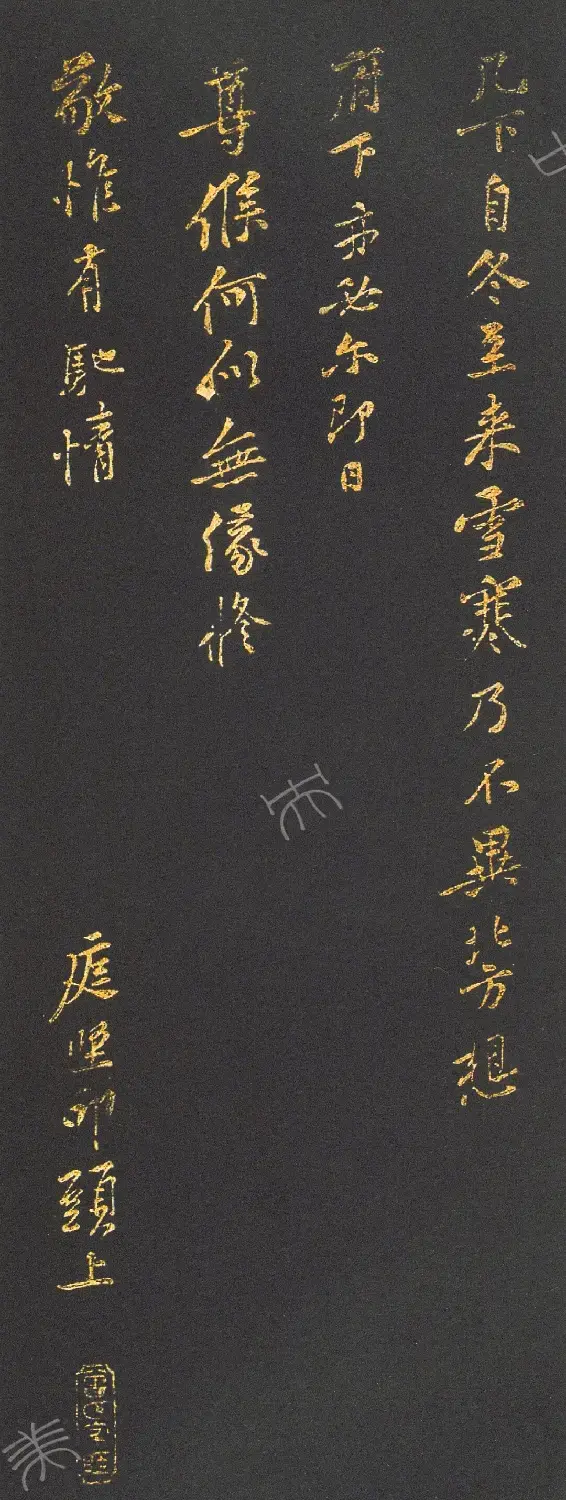 几下自冬至来雪寒乃不異北方想
府下亦必尔即日
尊候何似無緣修
敬惟有馳情
庭堅叩頭上